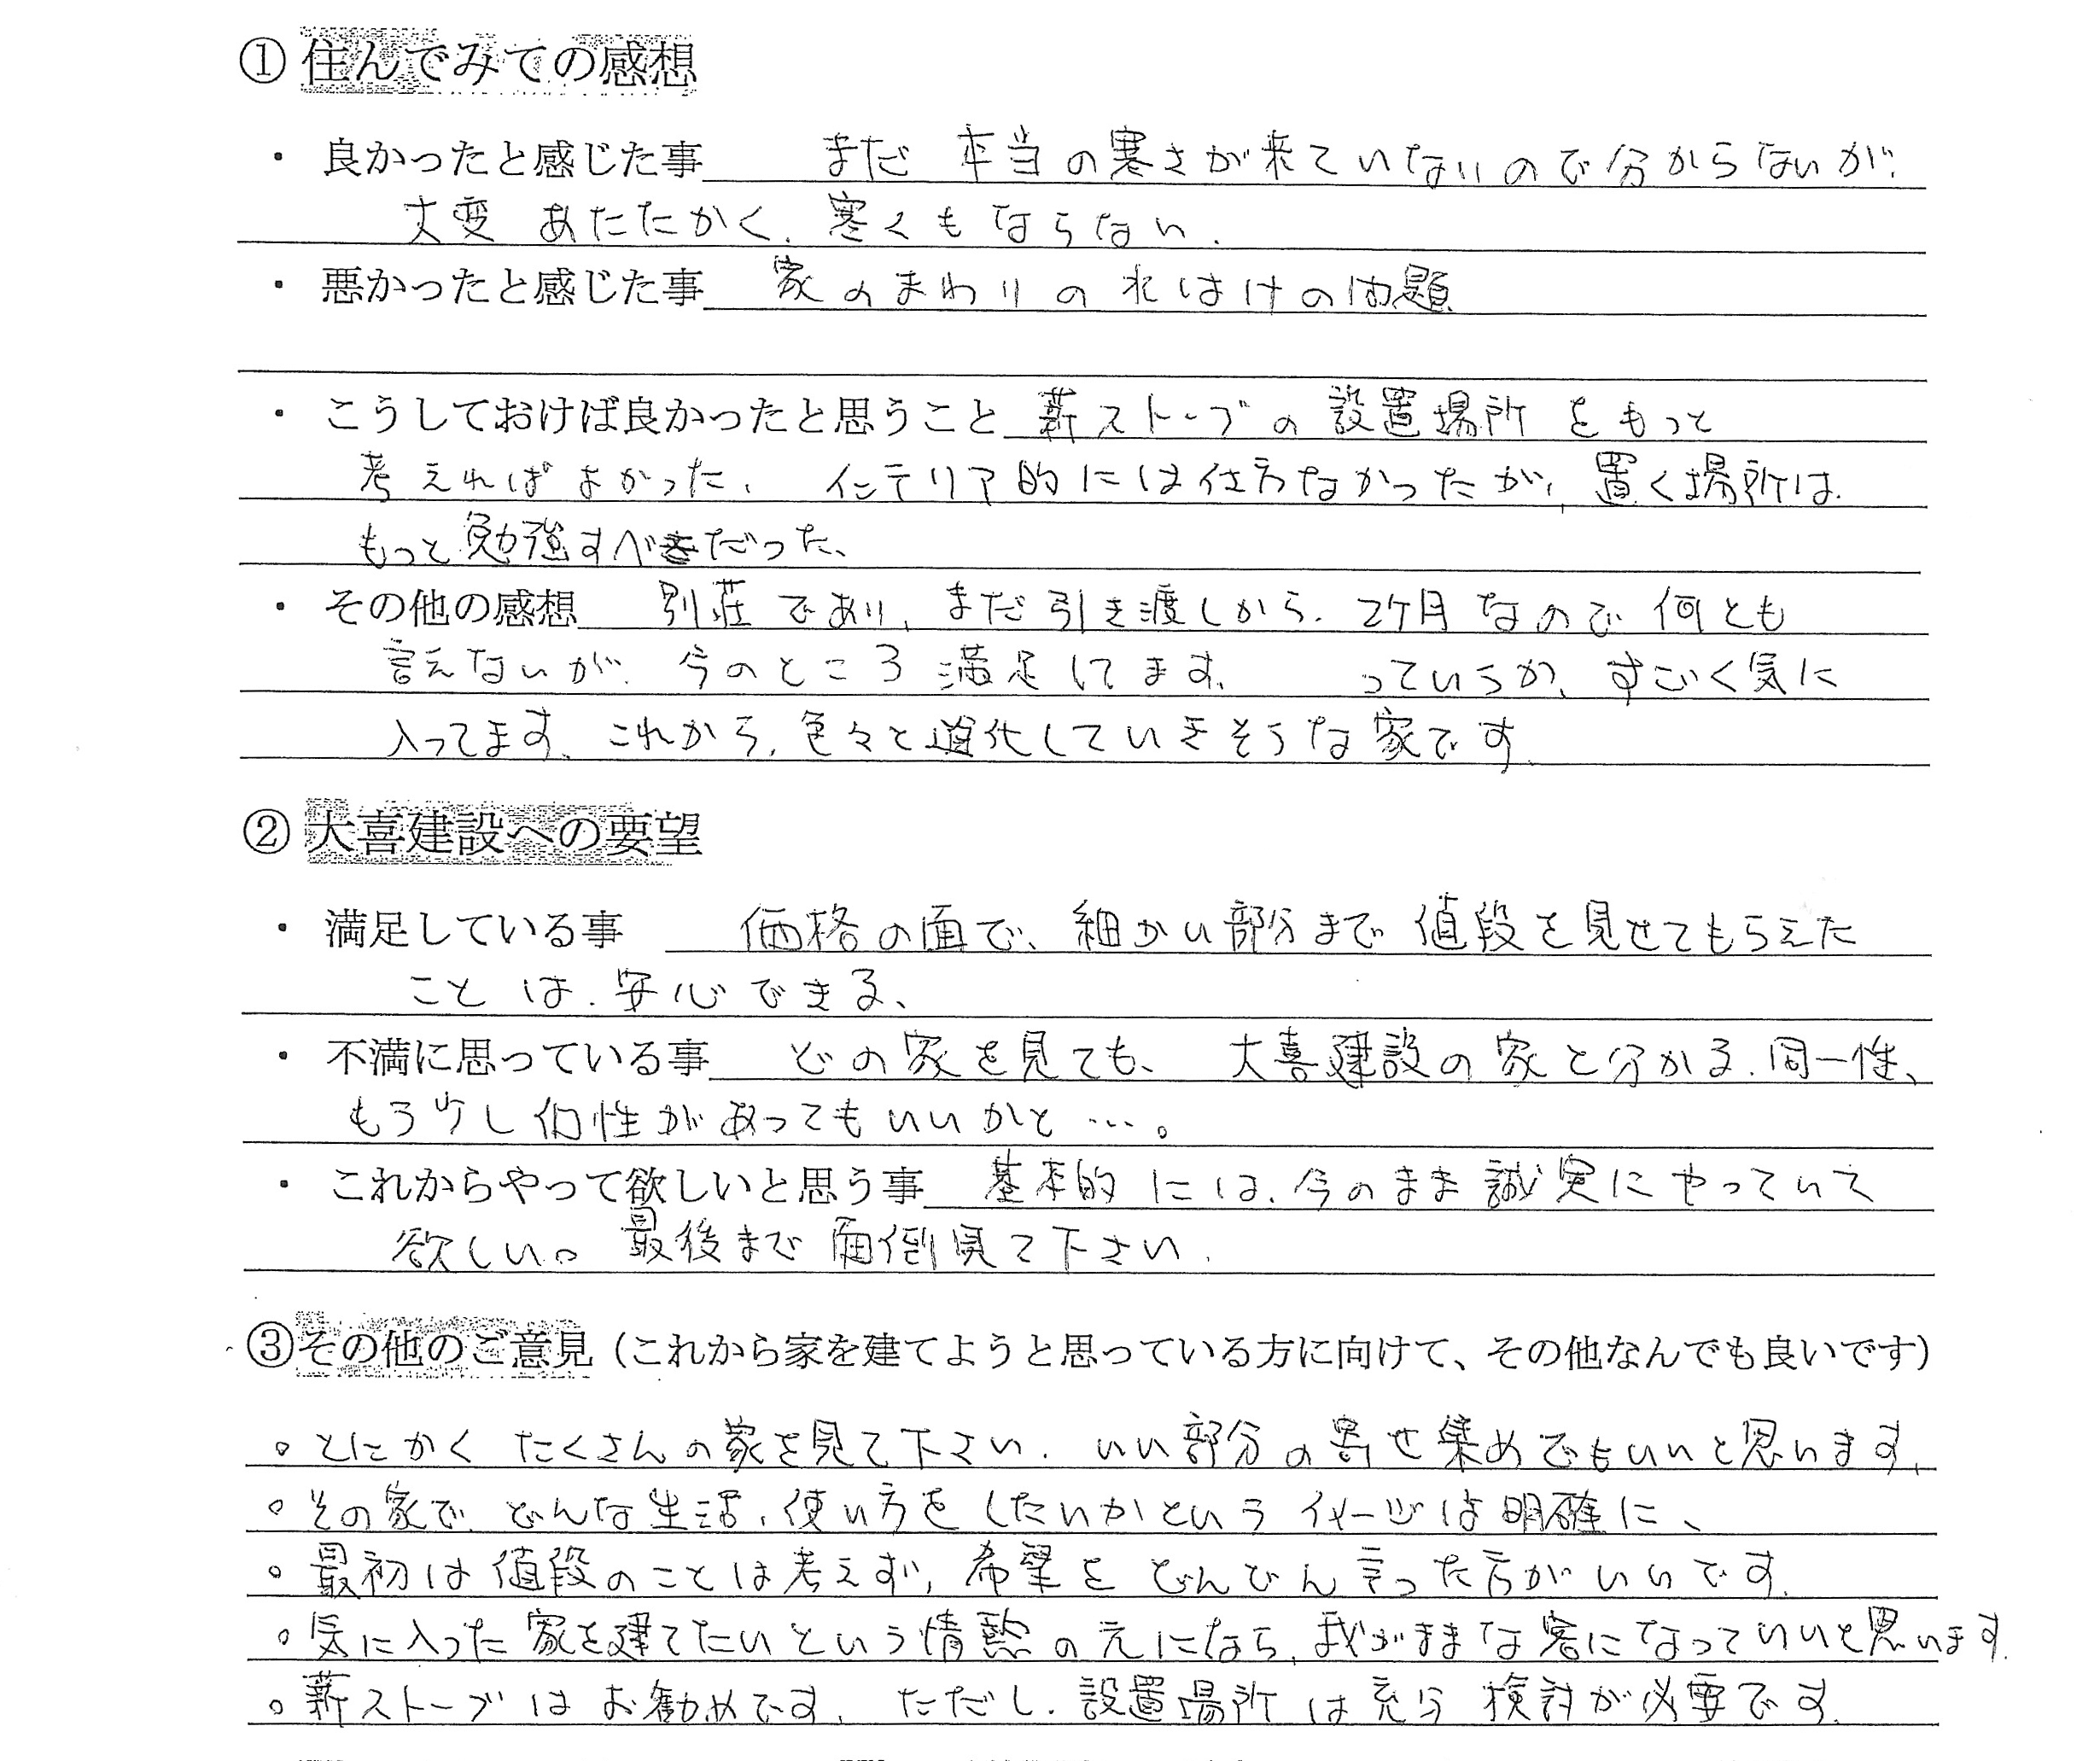 ① 住んでみての感想
・ 良かったと感じた事 まだ 本当の寒さが来ていないので分からないが、
大変 あたたかく、寒くもならない。
・ 悪かったと感じた事 家のまわりの水はけの問題
・ こうしておけば良かったと思うこと 薪ストーブの設置場所をもっと
考えればよかった、 インテリア的には仕方なかったが、置く場所は
もっと勉強すべきだった、
・ その他の感想 別荘であり、まだ引き渡しから、2ケ月なので何とも
言えないが、今のところ満足してます、 っていうか、すごく気に
入ってます、これから、色々と進化していきそうな家です、
② 大喜建設への要望
・ 満足している事 価格の面で、細かい部分まで 値段を見せてもらえた
ことは、安心できる、
・ 不満に思っている事 どの家を見ても、 大喜建設の家と分かる、同一性、
もう少し個性があってもいいかと…。
・ これからやって欲しいと思う事 基本的には、今のまま誠実にやっていて
欲しい。最後まで面倒見て下さい、
③その他のご意見（これから家を建てようと思っている方に向けて、その他なんでも良いです）
○ とにかくたくさんの家を見て下さい、いい部分の寄せ集めでもいいと思います、
○ その家で、どんな生活、使い方をしたいかというイメージは明確に、
○ 最初は値段のことは考えず、希望をどんどん言った方がいいです、
○ 気に入った家を建てたいという情熱の元になら、我がままな客になっていいと思います、
○ 薪ストーブはお勧めです、ただし、設置場所は充分検討が必要です、